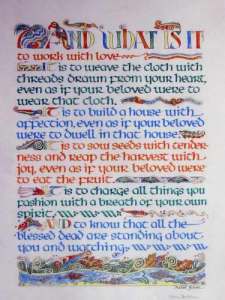 AND WHAT IS IT
to work with love
It is to weave the cloth with
threads drawn from your heart,
even as if your beloved were to
wear that cloth.
It is to build a house with
affection, even as if your beloved
were to dwell in that house.
It is to sow seeds with tender-
ness and reap the harvest with
joy, even as if your beloved were
to eat the fruit.
It is to charge all things you
fashion with a breath of your own
spirit,
AND to know that all the
blessed dead are standing about
you and watching.